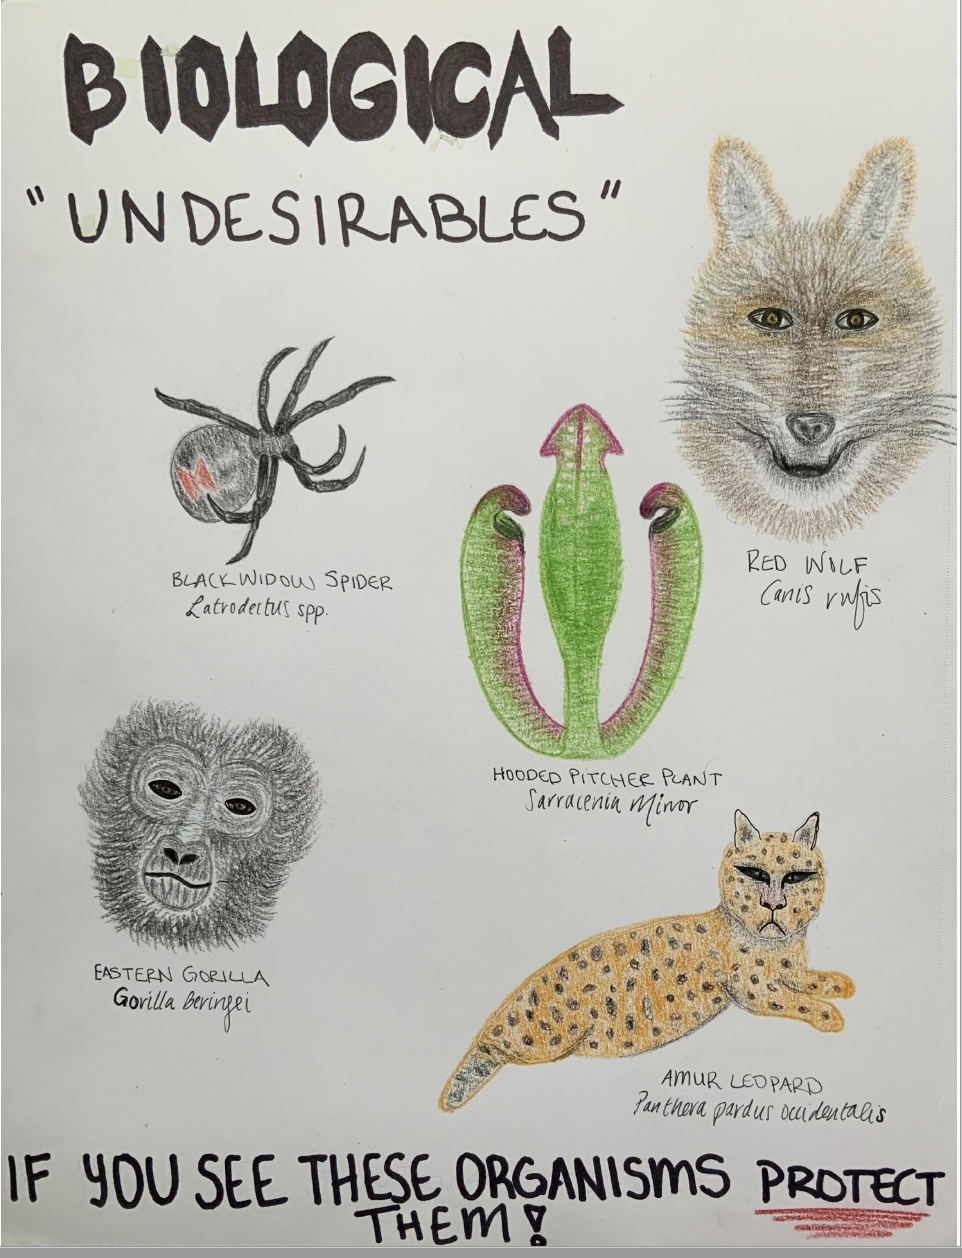 BIOLOGICAL
"UNDESIRABLES"
BLACK WIDOW SPIDER
Latrodectus spp.
RED WOLF
Canis rufis
HOODED PITCHER PLANT
Sarracenia Minor
EASTERN GORILLA
Gorilla Beringei
AMUR LEOPARD
Panthera pardus occidentalis
IF YOU SEE THESE ORGANISMS PROTECT
THEM!